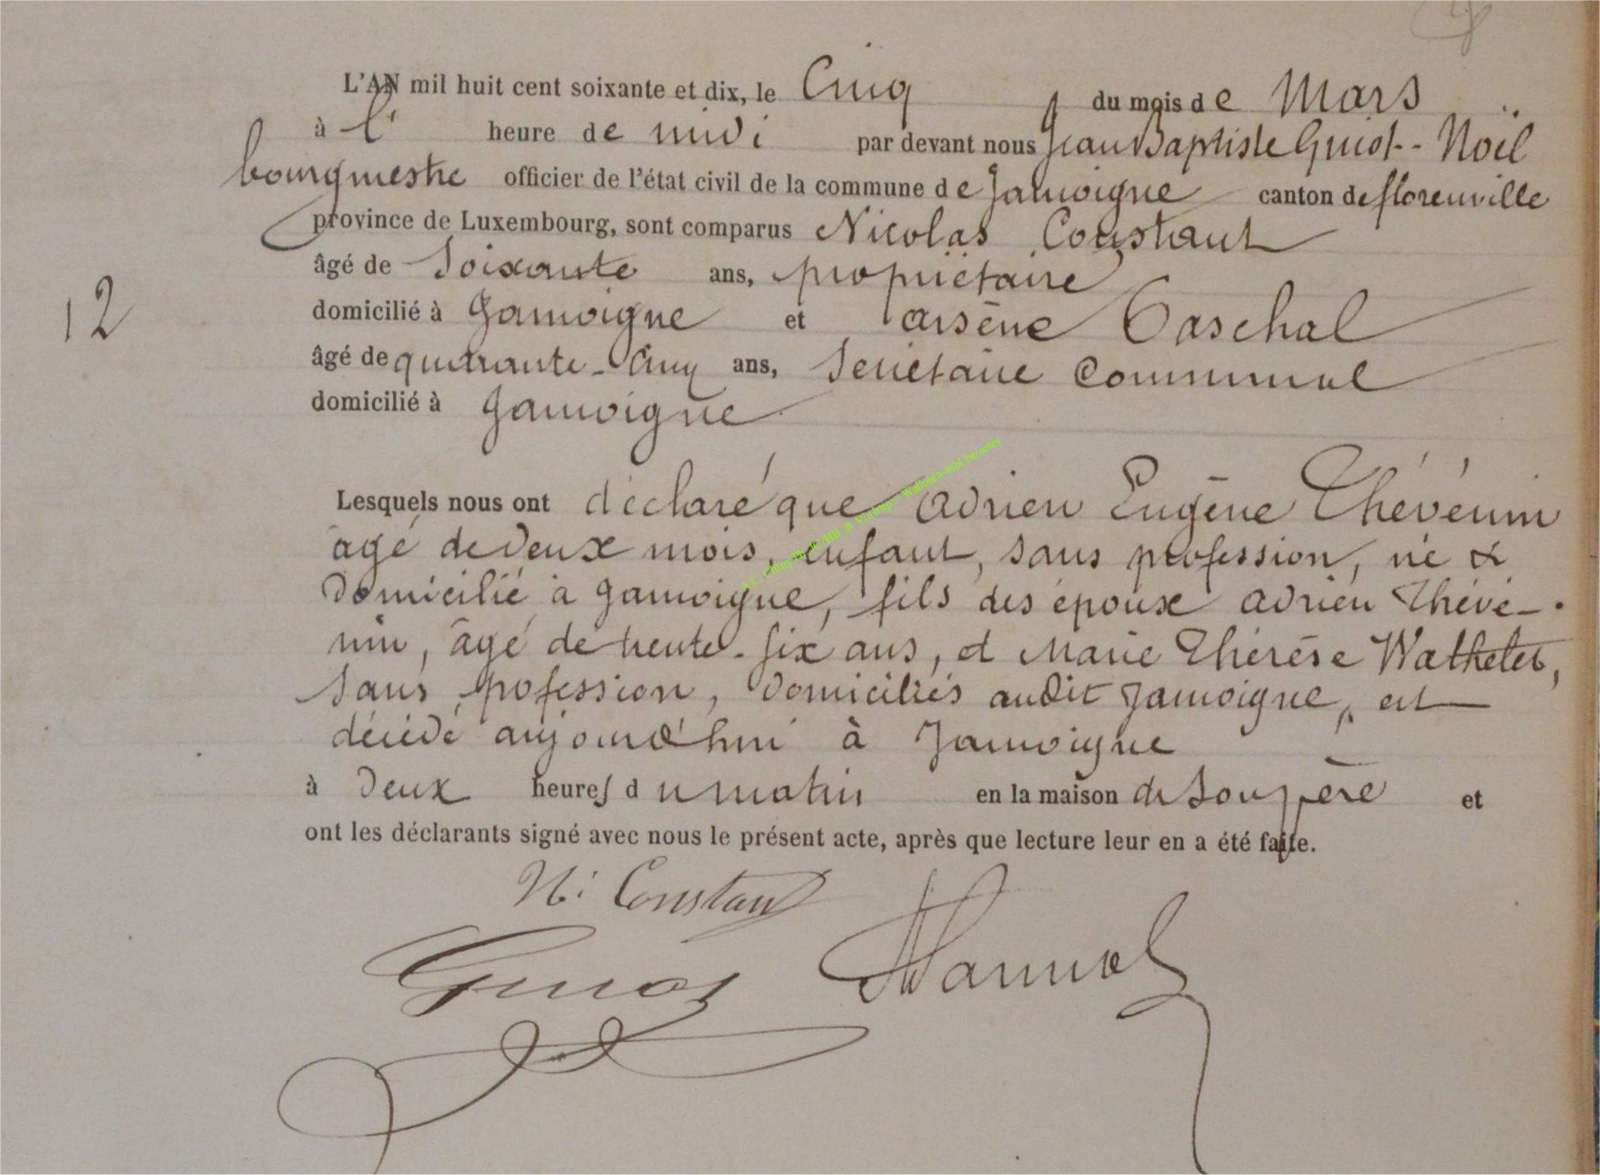 L'AN mil huit cent soixante et dix, le Cinq du mois de Mars
à l' heure de midi par devant nous Jean Baptiste Guiot-Noël
bourgmestre officier de l'état civil de la commune de Jamoigne canton de florenville
province de Luxembourg, sont comparus Nicolas Constant
âgé de Soixante ans, propriétaire
domicilié à Jamoigne et arsène
12
âgé de quarante-Cinq ans, Secrétaire Communal
domicilié à Jamoigne
Lesquels nous ont déclaré que adrien Eugène Thévenin
âgé de deux mois, enfant, sans profession, né &
domicilié à Jamoigne, fils des époux adrien Théve-
nin, âgé de trente-six ans, et Marie Thérèse Wathelet,
sans profession, domiciliés audit Jamoigne, est
décédé aujourd'hui à Jamoigne
à deux heures du matin en la maison de son père et
ont les déclarants signé avec nous le présent acte, après que lecture leur en a été faite.
N. Constant
Guiot